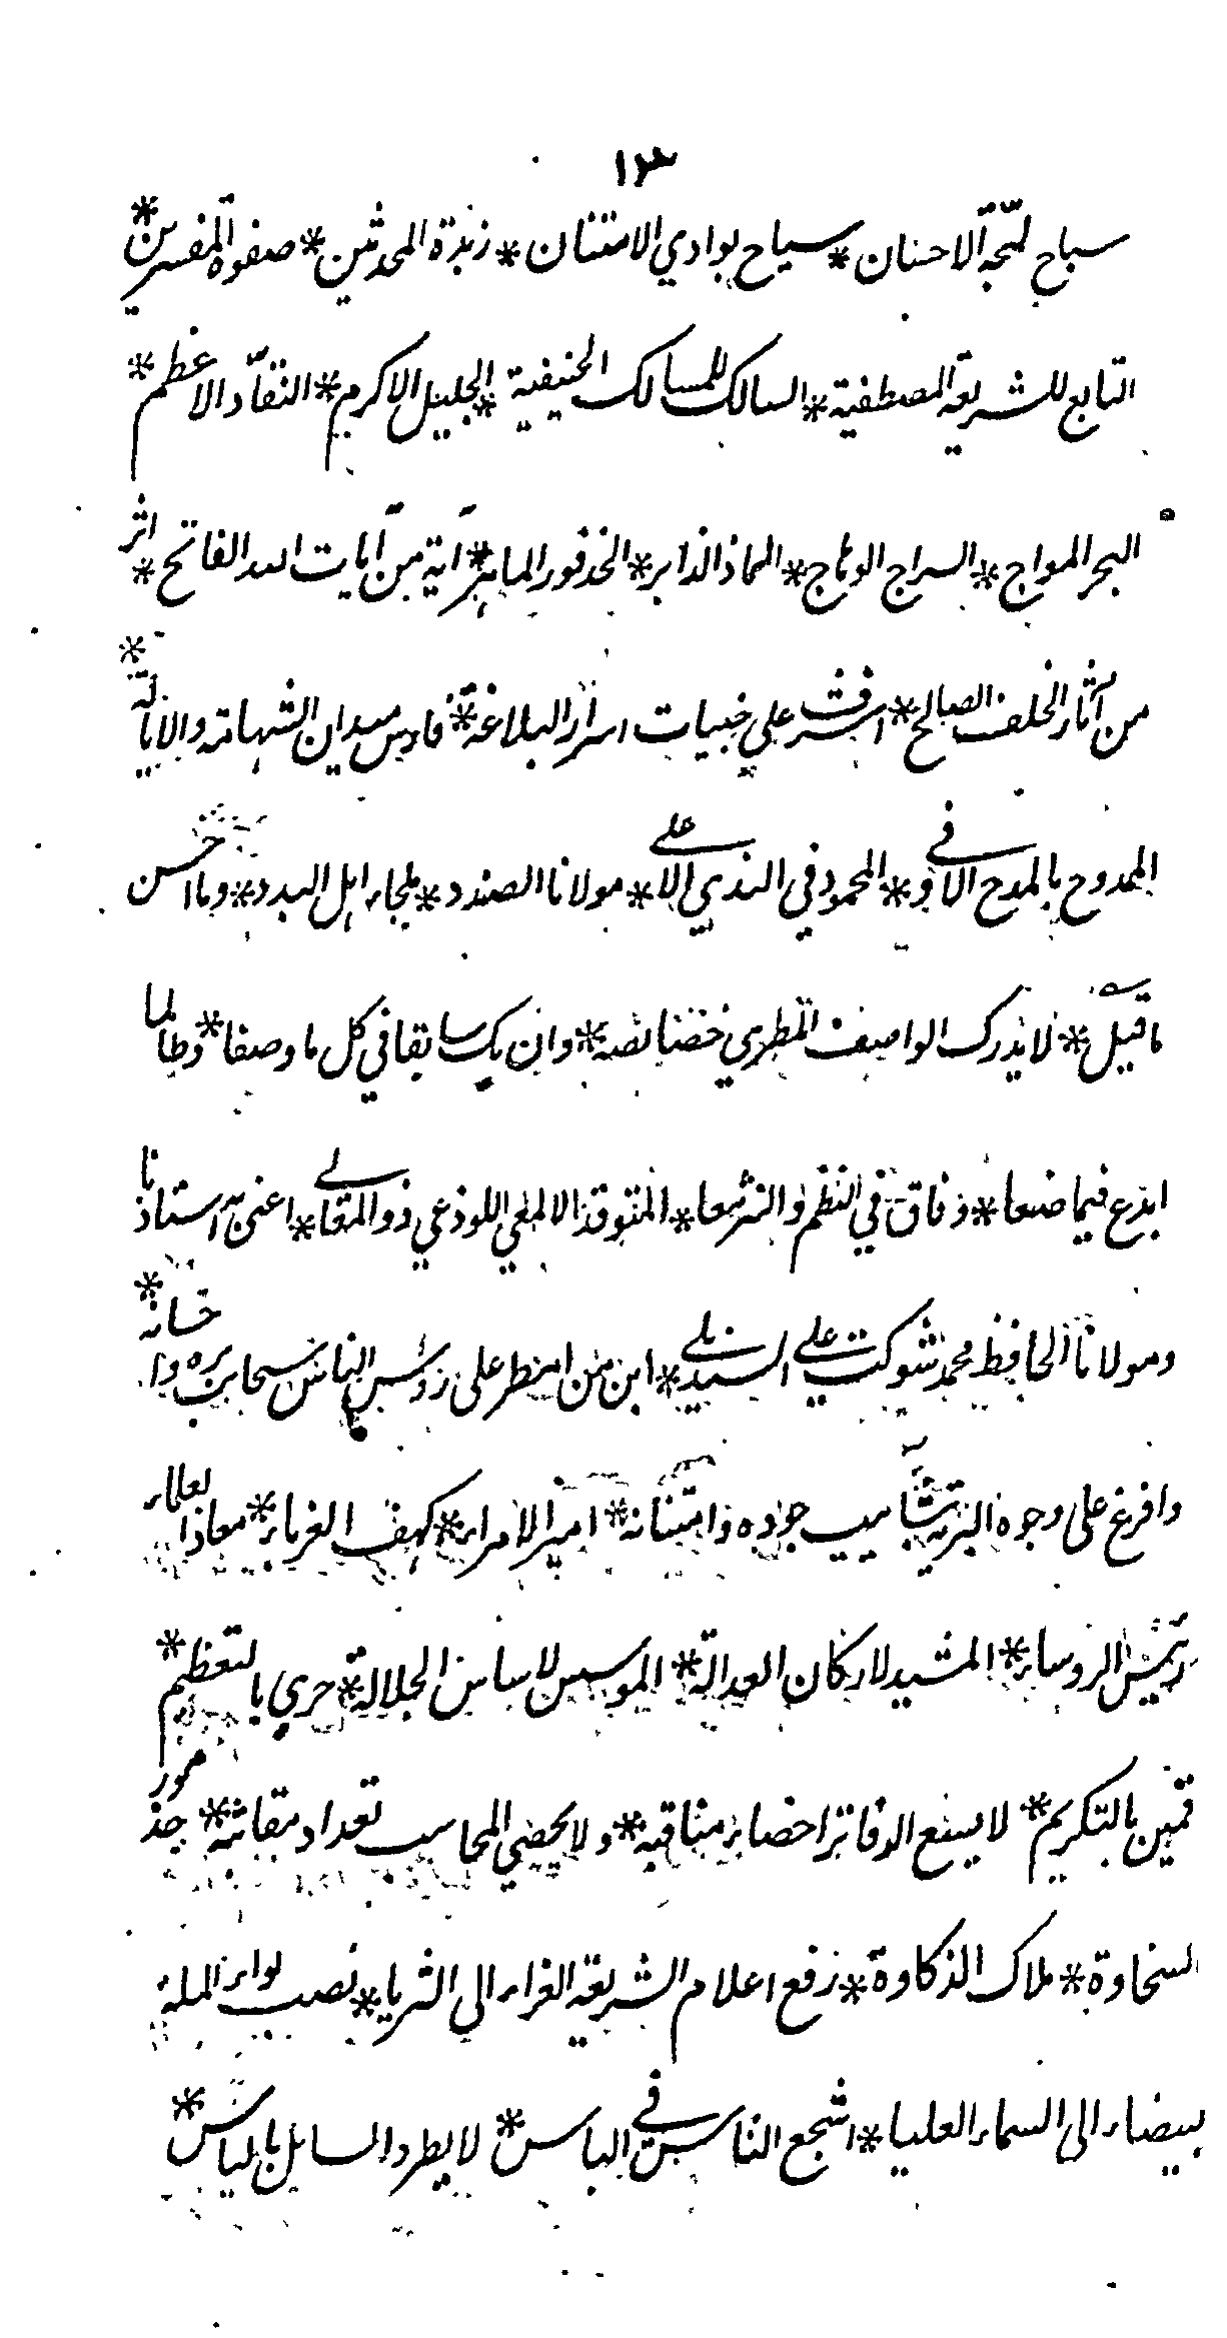 ١٣
سباح لجّة الاحسان * سياح بوادي الامتنان * زبدة المحدثين * صفوة المفسرين *
التابع للشريعة المصطفية * السالك للمسالك الحنيفية * الجليل الاكرم * النقّاد الاعظم *
البحر المواج * السراج الوهاج * الماذ الذابر * الخدفور الماهر * آية من آيات الله الفاتح * اثر
من آثار الخلف الصالح * اشرفت على خبيات اسرار البلاغة * فارس ميدان الشهامة والايالة *
الممدوح بالمدح الاوفى * المحمود في الندي الاعلى * مولانا الصندد * ملجاء اهل البدد * وما احسن
ما قيل * لا يدرك الواصف المطري خصائصه * وان يك سابقا في كل ما وصفا * وطالما
ابدع فيما صنعا * وفاق في النظم والنثر معا * المتوقد الالمعي اللوذعي ذو المعالي * اعني به استاذنا
ومولانا الحافظ محمد شوكت علي السنديلي * ابن من امطر على رؤس الناس سحايب بره واحسانه *
وافرغ على وجوه البرية شآبيب جوده وامتنانه * امير الامراء * كهف الغرباء * معاذ العلماء
رئيس الروساء * المشيد لاركان العدالة * الموسس لاساس الجلالة * حري بالتعظيم *
قمين بالتكريم * لا يسع الدفاتر احصاء مناقبه * ولا يحصي المحاسب تعداد مقانبه *
السخاوة * ملاك الذكاوة * رفع اعلام الشريعة الغراء الى الثريا * نصب لواء الملة
بيضاء الى السماء العليا * اشجع الناس في الباس * لا يطرد السايل بالياس *